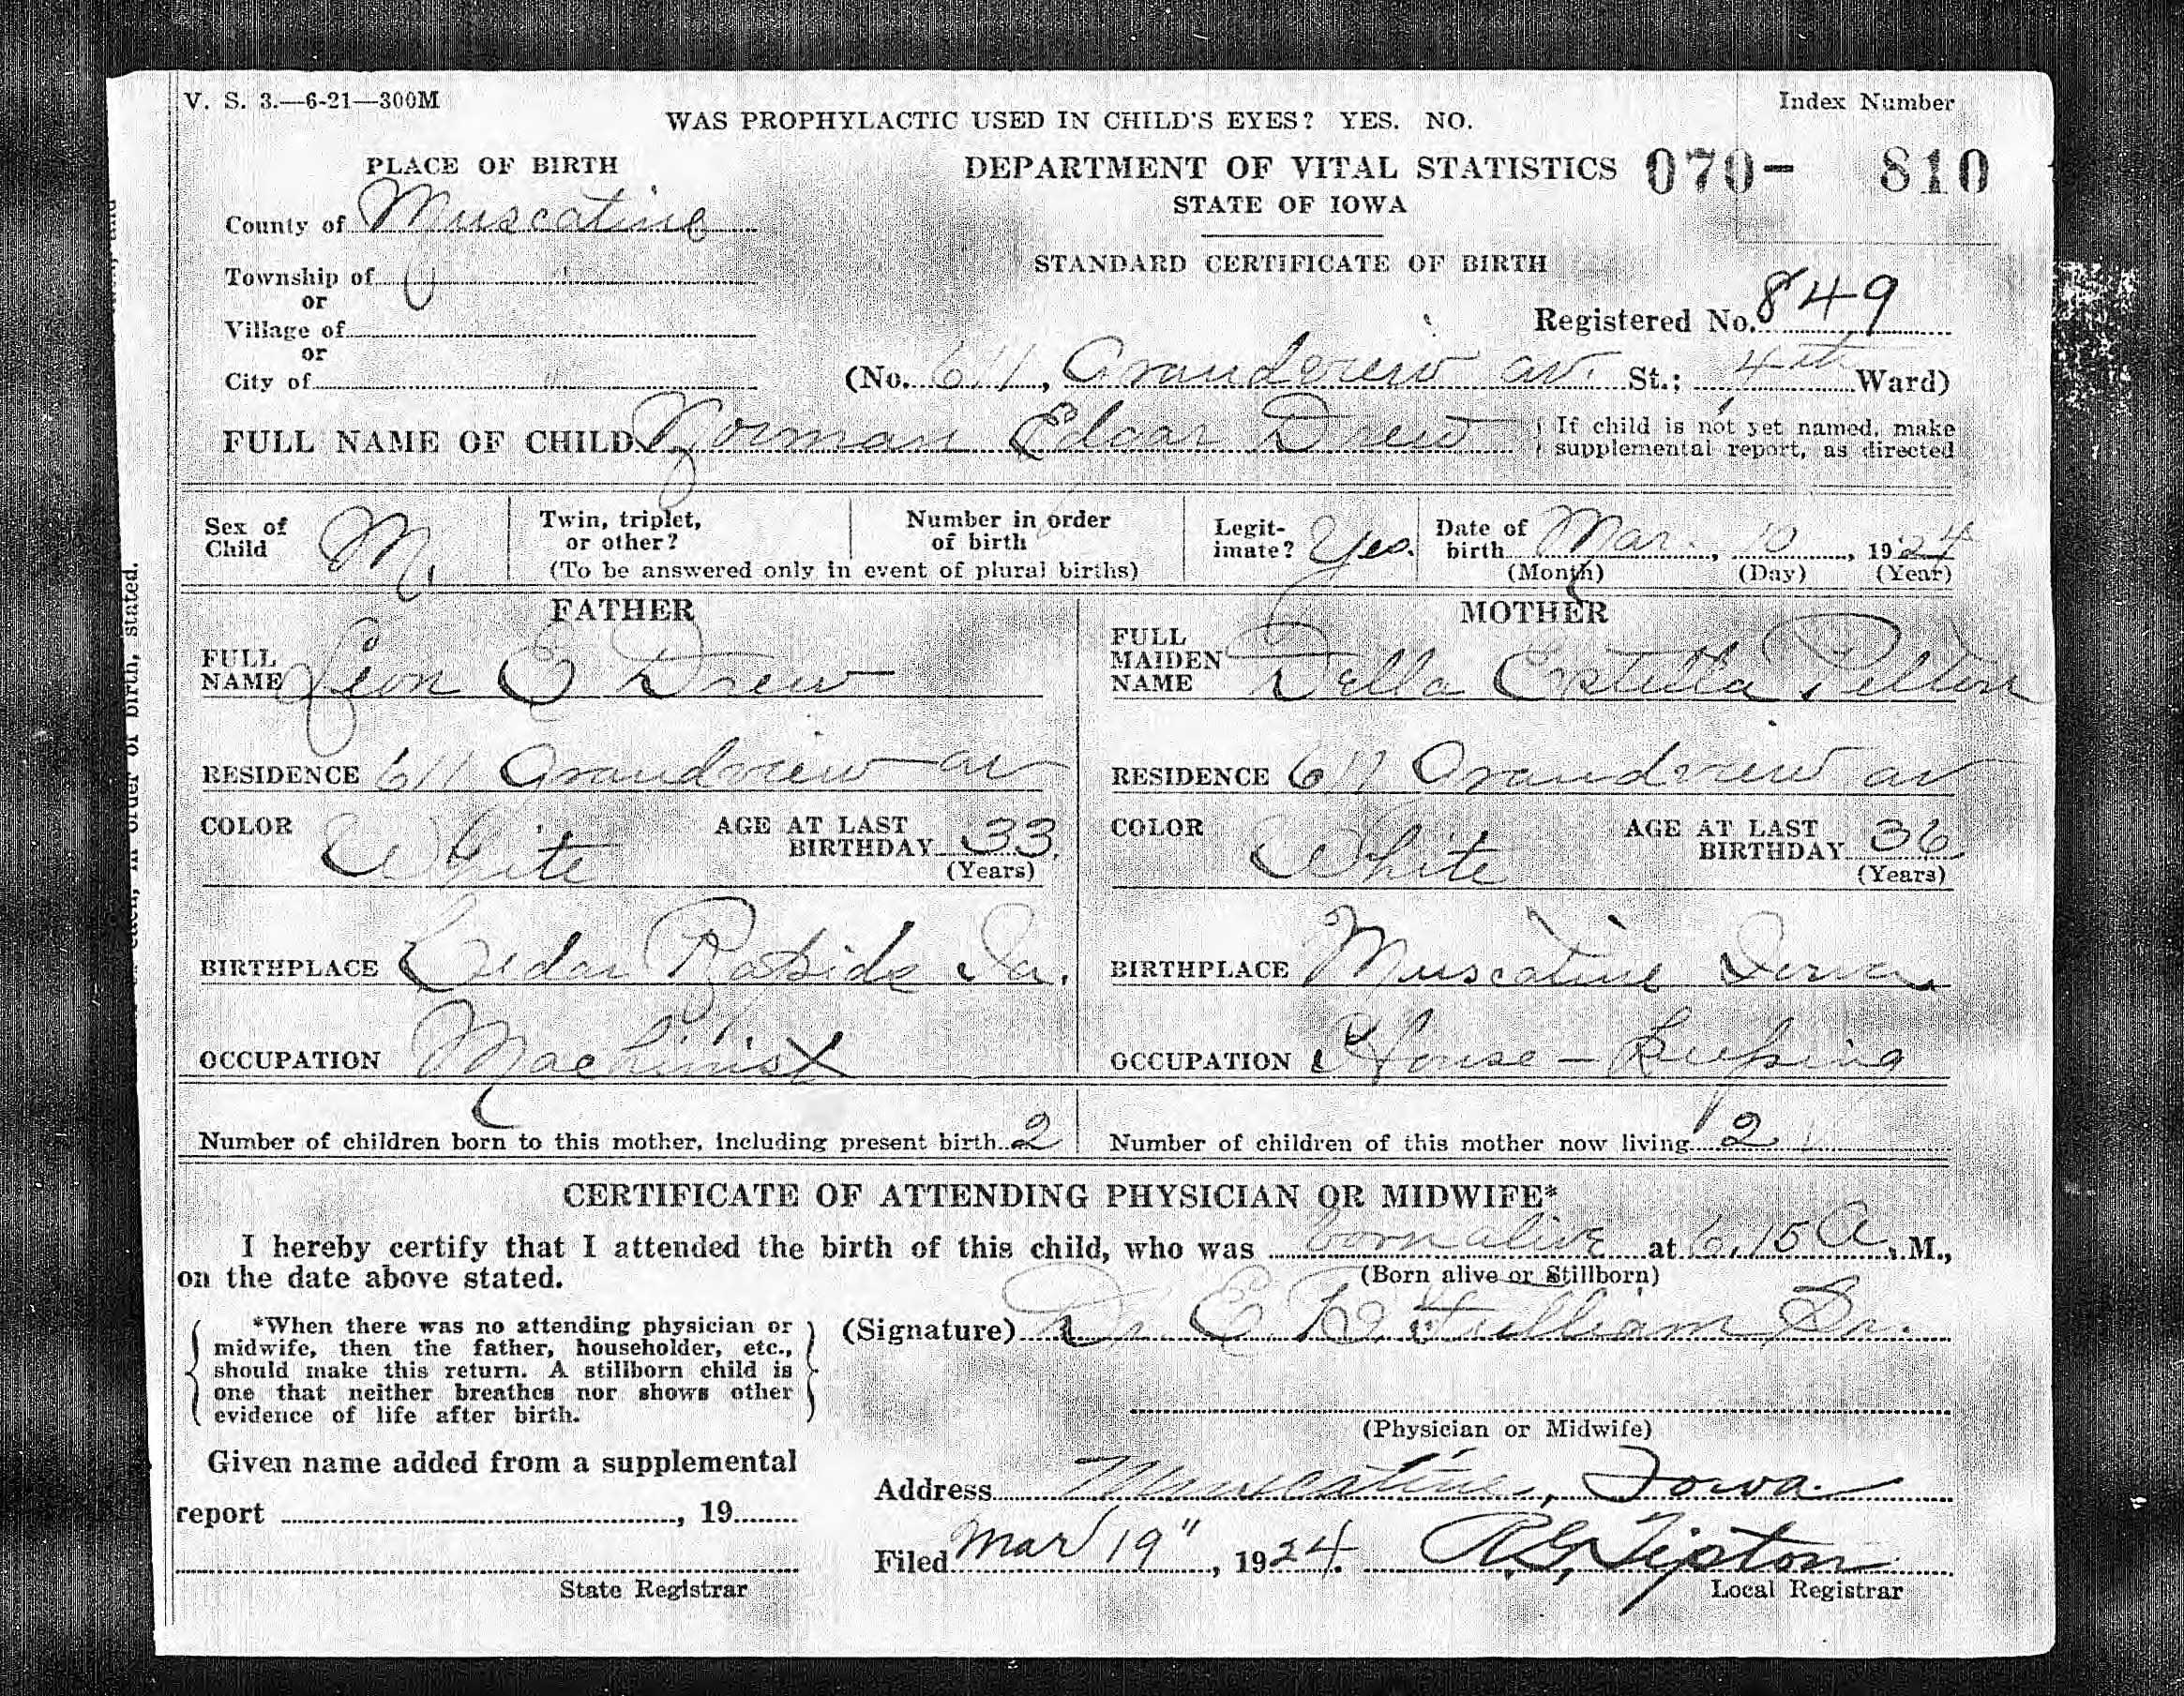 V. S. 3.—6-21—300M
Index Number
WAS PROPHYLACTIC USED IN CHILD'S EYES? YES. NO.
PLACE OF BIRTH
DEPARTMENT OF VITAL STATISTICS
070- 810
STATE OF IOWA
County of Muscatine
STANDARD CERTIFICATE OF BIRTH
Township of
or
Registered No. 849
Village of
or
City of
(No. 611, Grandview av. St.; 4th Ward)
FULL NAME OF CHILD Norman Edgar Drew
If child is not yet named, make
supplemental report, as directed
Sex of
Child M.
Twin, triplet,
or other?
Number in order
of birth
(To be answered only in event of plural births)
Legit-
imate? Yes.
Date of
birth Mar. 10, 1924
(Month) (Day) (Year)
FATHER
FULL
NAME Leon E Drew
RESIDENCE 611 Grandview av
COLOR White
AGE AT LAST
BIRTHDAY 33
(Years)
BIRTHPLACE Cedar Rapids Ia.
OCCUPATION Machinist
MOTHER
FULL
MAIDEN
NAME Della Estella
RESIDENCE 611 Grandview av
COLOR White
AGE AT LAST
BIRTHDAY 36
(Years)
BIRTHPLACE Muscatine Iowa
OCCUPATION House-Keeping
Number of children born to this mother, including present birth 2
Number of children of this mother now living 2
CERTIFICATE OF ATTENDING PHYSICIAN OR MIDWIFE*
I hereby certify that I attended the birth of this child, who was born alive at 6.15 A. M.,
on the date above stated.
(Born alive or Stillborn)
*When there was no attending physician or
midwife, then the father, householder, etc.,
should make this return. A stillborn child is
one that neither breathes nor shows other
evidence of life after birth.
(Signature) Dr. E. B. Fulliam Sr.
(Physician or Midwife)
Given name added from a supplemental
report , 19
State Registrar
Address Muscatine, Iowa.
Filed Mar 19", 1924. R.G. Tipton
Local Registrar
in order of birth, stated.